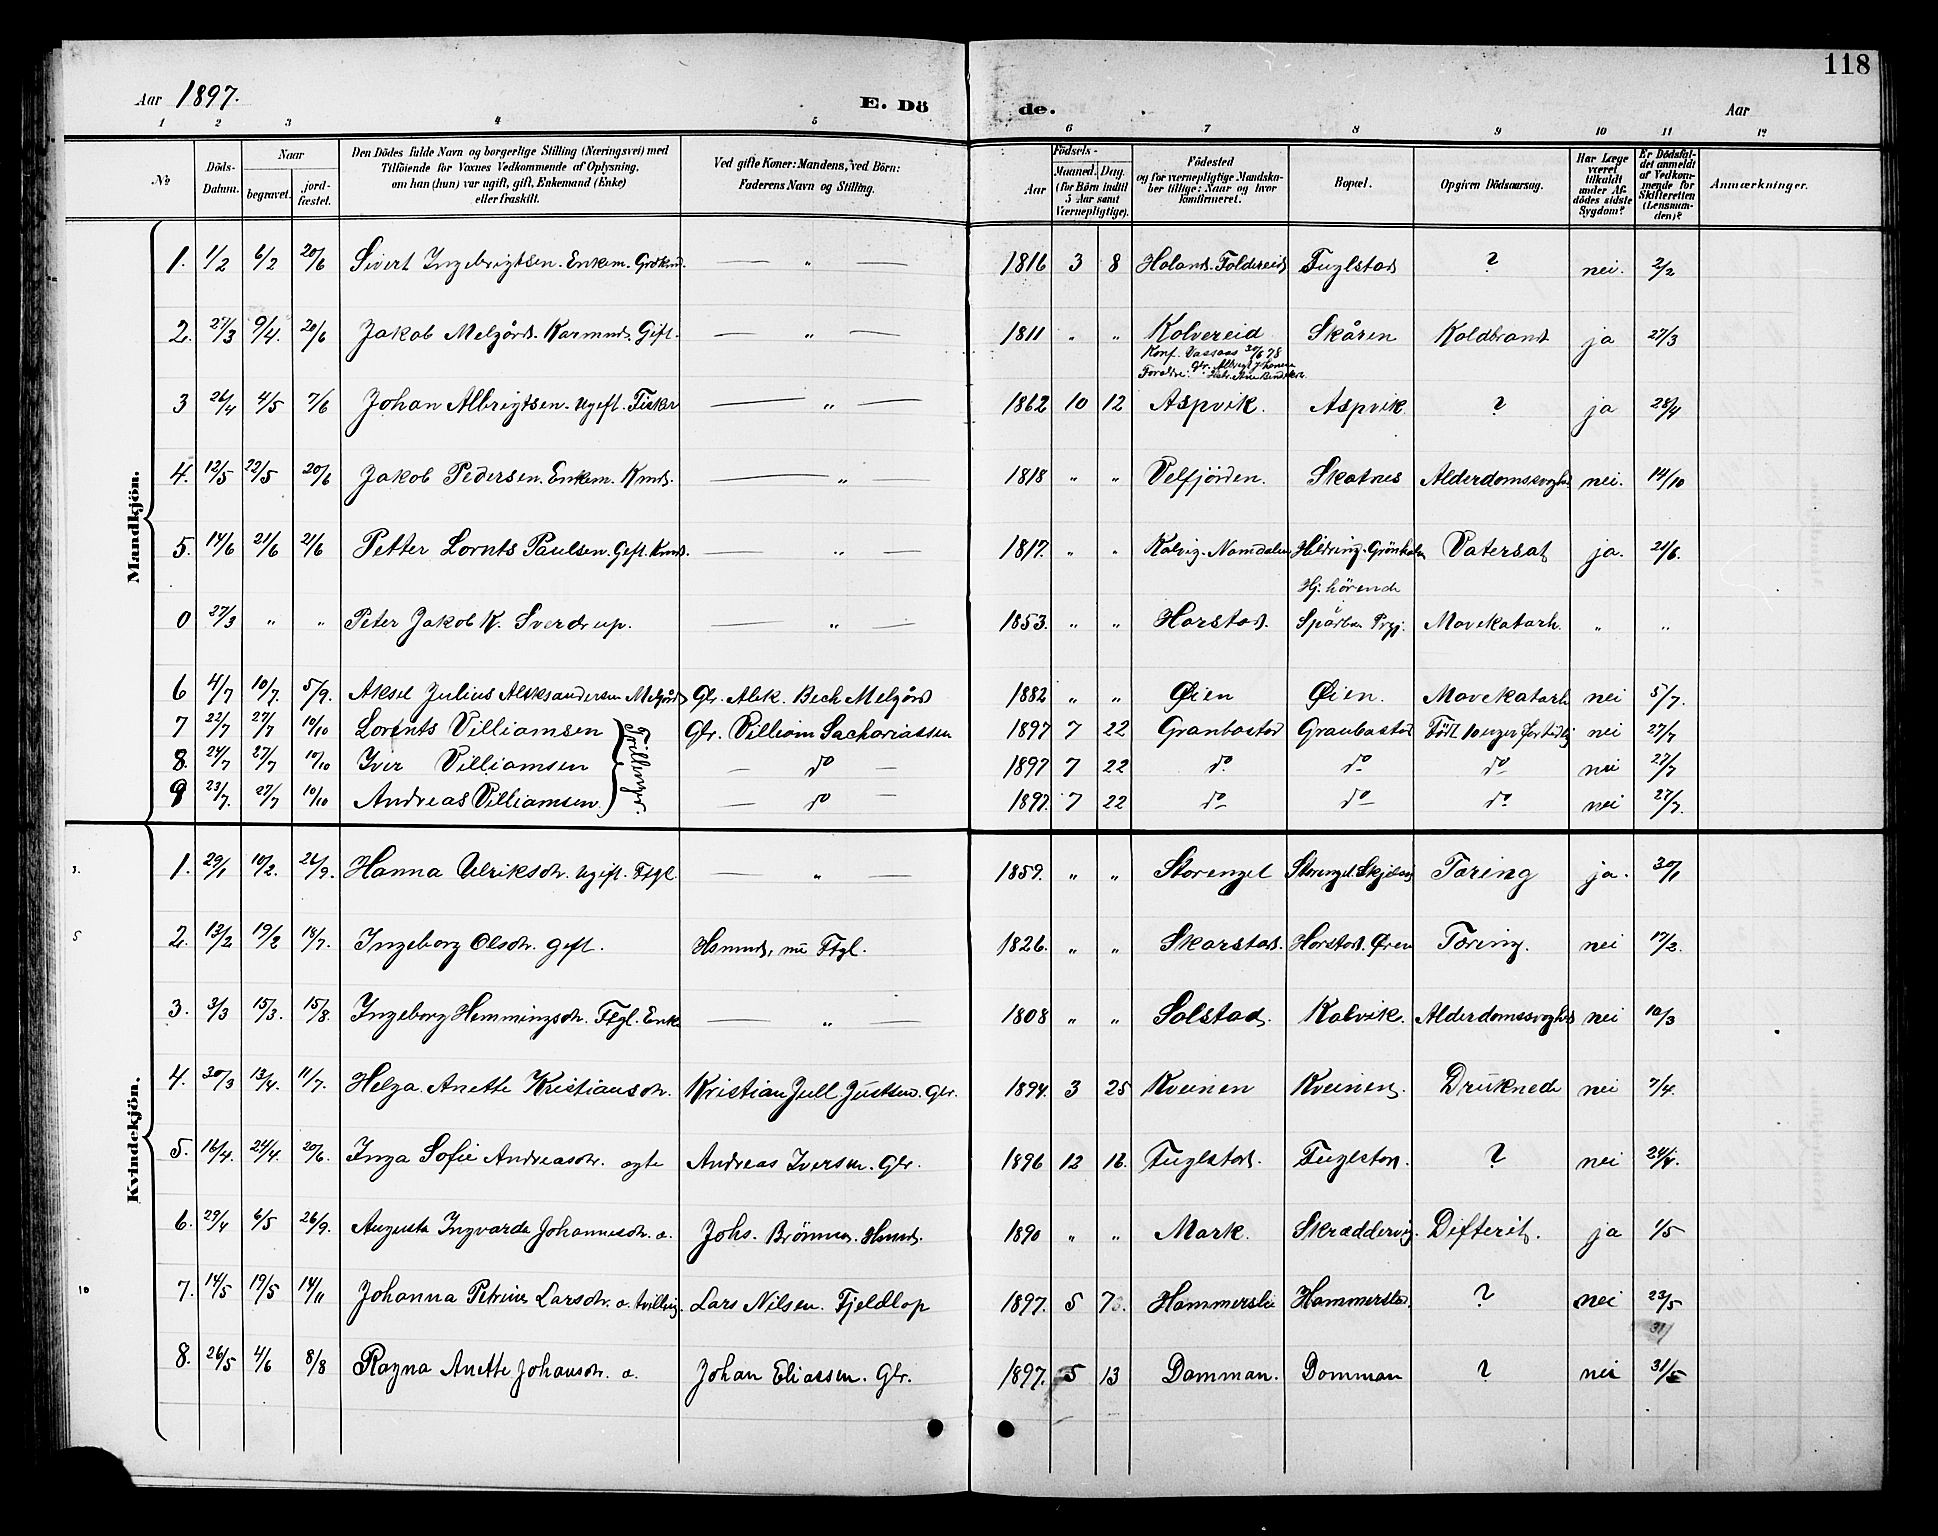 118
Aar 1897. E. Dö de. Aar
1 2 3 4 5 6 7 8 9 10 11 12
No Döds-Datum. Naar begravet. jordfæstet. Den Dödes fulde Navn og borgerlige Stilling (Næringsvei) med Tilföiende for Voxnes Vedkommende af Oplysning, om han (hun) var ugift, gift, Enkemand (Enke) eller fraskilt. Ved gifte Koner: Mandens, ved Börn: Faderens Navn og Stilling. Födsels- Aar Maaned. Dag. (for Börn indtil 5 Aar samt Værnepligtige). Födested og for værnepligtige Mandskaber tillige: Naar og hvor konfirmeret. Bopæl. Opgiven Dödsaarsag. Har Læge været tilkaldt under Afdödes sidste Sygdom? Er Dödsfaldet anmeldt af Vedkommende for Skifteretten (Lensmanden)? Anmærkninger.
Mandkjön.
1. 1/2 6/2 20/6 Sivert Ingebrigtsen. Enkem. — " — 1816 3 8 Foldereid Fuglstad ? nei. 2/2
2. 27/3 9/4. 20/6 Jakob Melgård. Gift. — " — 1811 " " Kolvereid Skåren Koldbrand ja 27/3
Konf. Vassaas 30/6 78
3 26/4 4/5 7/6 Johan Albrigtsen. Ugift. Fisker — " — 1862 10 12 Aspvik. Aspvik ? ja 28/4
4. 12/5 22/5 20/6 Jakob Pedersen. Enkem. Kmd. — " — 1818 " " Velfjörden. Skatnes Alderdomssvaghed nei. 14/10
5. 14/6 21/6 21/6 Petter Lornts Paulsen. Gift. Kmd. — " — 1817. " " Kalvig. Namdalen Hildring. Grönholm Vatersot ja. 21/6.
Hj: hörende
0 27/3 " " Peter Jakob K. Sverdrup. — " — 1853. " " Horstad. Spårbu Prgj. Mavekatarh. " "
6 4/7 10/7. 5/9. Aksel Julius Aleksandersen Melgård Gbr. Alek. Bech Melgård 1882 " " Øien Øien. Mavekatarh nei 5/7.
7 22/7 27/7 10/10 Lorents Villiamsen Gbr. Villiam Sachariassen 1897 7 22 Granbostad Graubostad Född 10 uger for tidlig nei 27/7
8. 24/7 27/7 10/10 Iver Villiamsen — do — 1897 7 22 do do do nei 27/7
9 23/7. 27/7 10/10 Andreas Villiamsen. — do — 1897. 7 22 do do do nei 27/7.
Trillinger.
Kvindekjön.
1. 29/1 10/2. 26/9. Hanna Ulriksdtr. ugift. Ftgl — " — 1859. " " Storengel Storengel. Tæring ja. 30/1
2. 13/2 19/2 18/7. Ingeborg Olsdtr. gift. Hsmnd, nu Ftgl. 1826. " " Skarstad. Horstad. Øren Tæring. nei 17/2.
3. 3/3 15/3. 15/8. Ingeborg Hemmingsdtr. Ftgl. Enke — " 1808 " " Solstad. Kalvik. Alderdomssvaghed nei 10/3
4. 30/3 13/4. 11/7. Helga Anette Kristiansdtr. Kristian Jull. Justsen. Gbr. 1894. 3 25 Kveinen Kveinen. Druknede nei 7/4.
5. 16/4. 24/4. 20/6. Inga Sofie Andreasdtr. ægte Andreas Iversen. Gbr. 1896 12 16. Fuglstad. Fuglstad. ? nei 24/4.
6. 29/4 6/5 26/9. Augusta Ingvarda Johannesdtr. æ. Johs. Brönmo. Hsmd. 1890 " " Mark. Skræddervig. Difterit. ja 1/5
7. 14/5 19/5 14/11 Johanna Petrine Larsdtr. æ. tvilling. Lars Nilsen. Fjeldlap 1897. 5 7. Hammerslia Hammerslia. ? nei 23/5
31/
8. 26/5 4/6 8/8 Ragna Anette Johansdtr. æ. Johan Eliassen. Gbr. 1897. 5 13 Domman. Domman ? nei 31/5